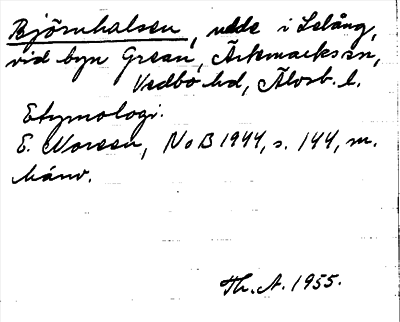 Björnhalsen, udde i Lelång,
vid byn Grean, Ärtemarks sn,
Vedbo hd, Älvsb. l.
Etymologi.
E. Noreen, NoB 1944, s. 144, m.
hänv.
Th. A. 1955.